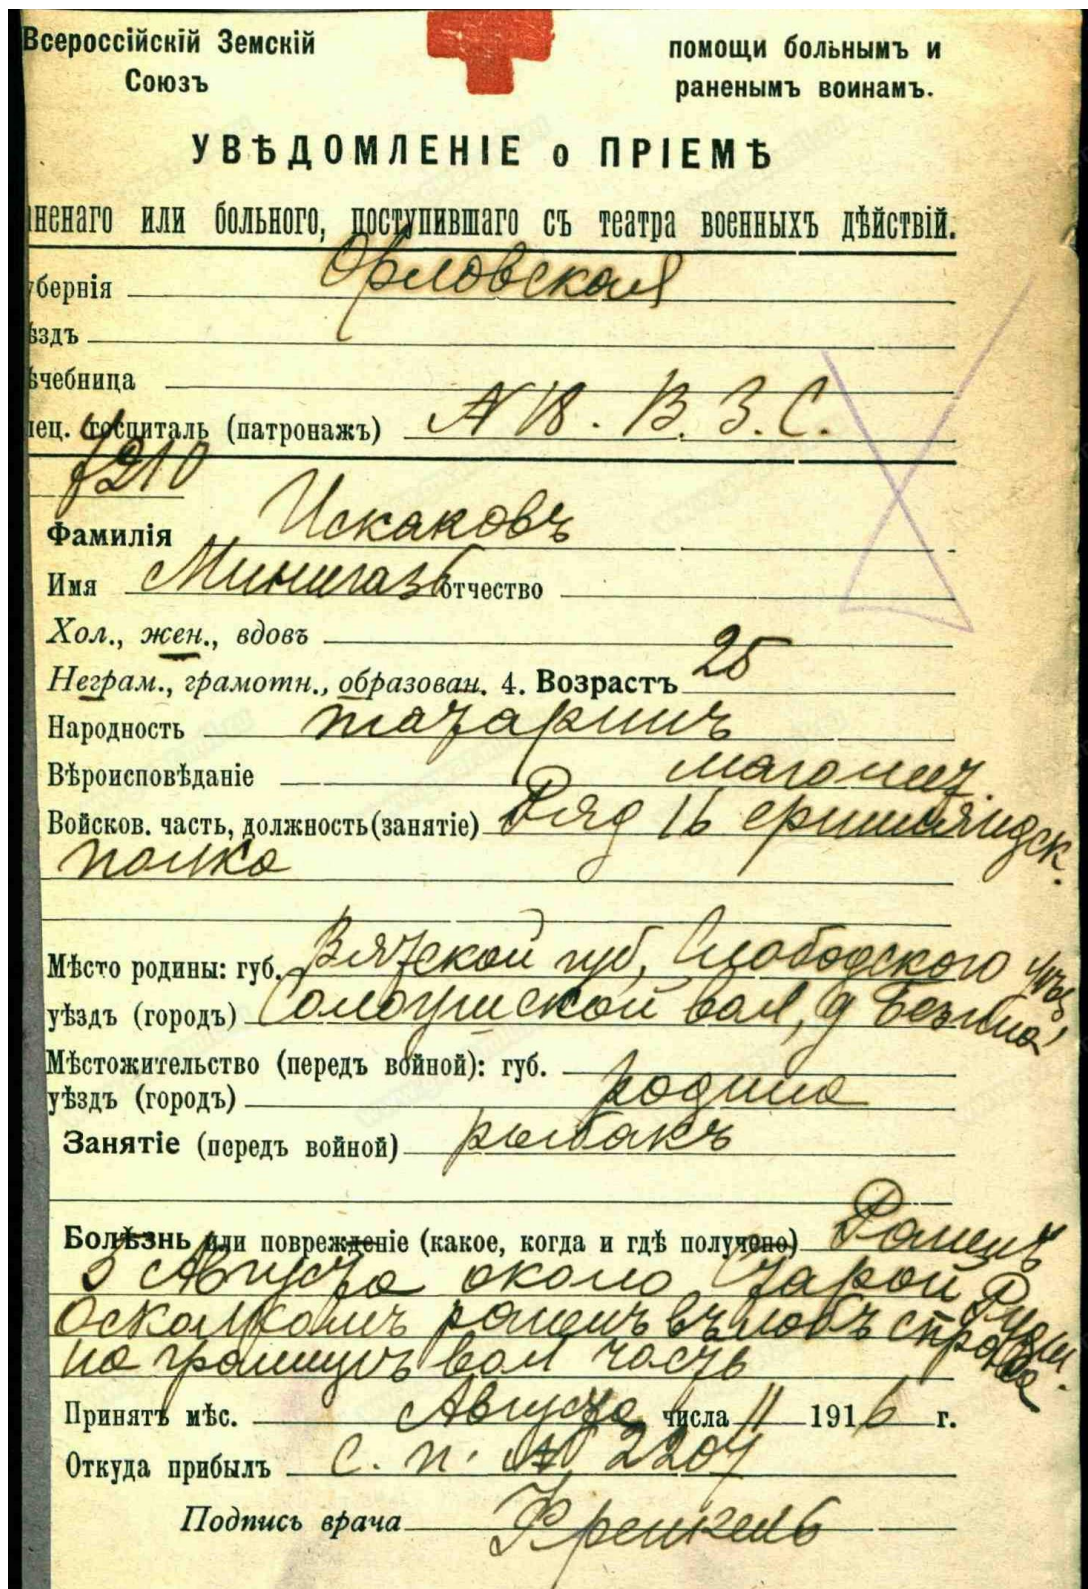 Всероссійскій Земскій
Союзъ
помощи больнымъ и
раненымъ воинамъ.
УВѢДОМЛЕНІЕ о ПРІЕМѢ
аненаго или больного, поступившаго съ театра военныхъ дѣйствій.
убернія Орловская
ѣздъ
ѣчебница
пец. госпиталь (патронажъ) № 18. В. З. С.
Фамилія Искаковъ
Имя Минигазъ отчество
Хол., жен., вдовъ
Неграм., грамотн., образован. 4. Возрастъ 25
Народность татаринъ
Вѣроисповѣданіе магомет.
Войсков. часть, должность (занятіе) Ряд 16 финляндск.
полка
Мѣсто родины: губ. Вятской губ, Слободского уѣз
уѣздъ (городъ) вол, д
Мѣстожительство (передъ войной): губ.
уѣздъ (городъ) родина
Занятіе (передъ войной) рыбакъ
Болѣзнь или поврежденіе (какое, когда и гдѣ получено) Раненъ
3 Августа около Старой
Осколкомъ раненъ въ лобъ справа
на границѣ вол часть
Принятъ мѣс. Августа числа 11 1916 г.
Откуда прибылъ С. п. № 2207
Подпись врача Френкель